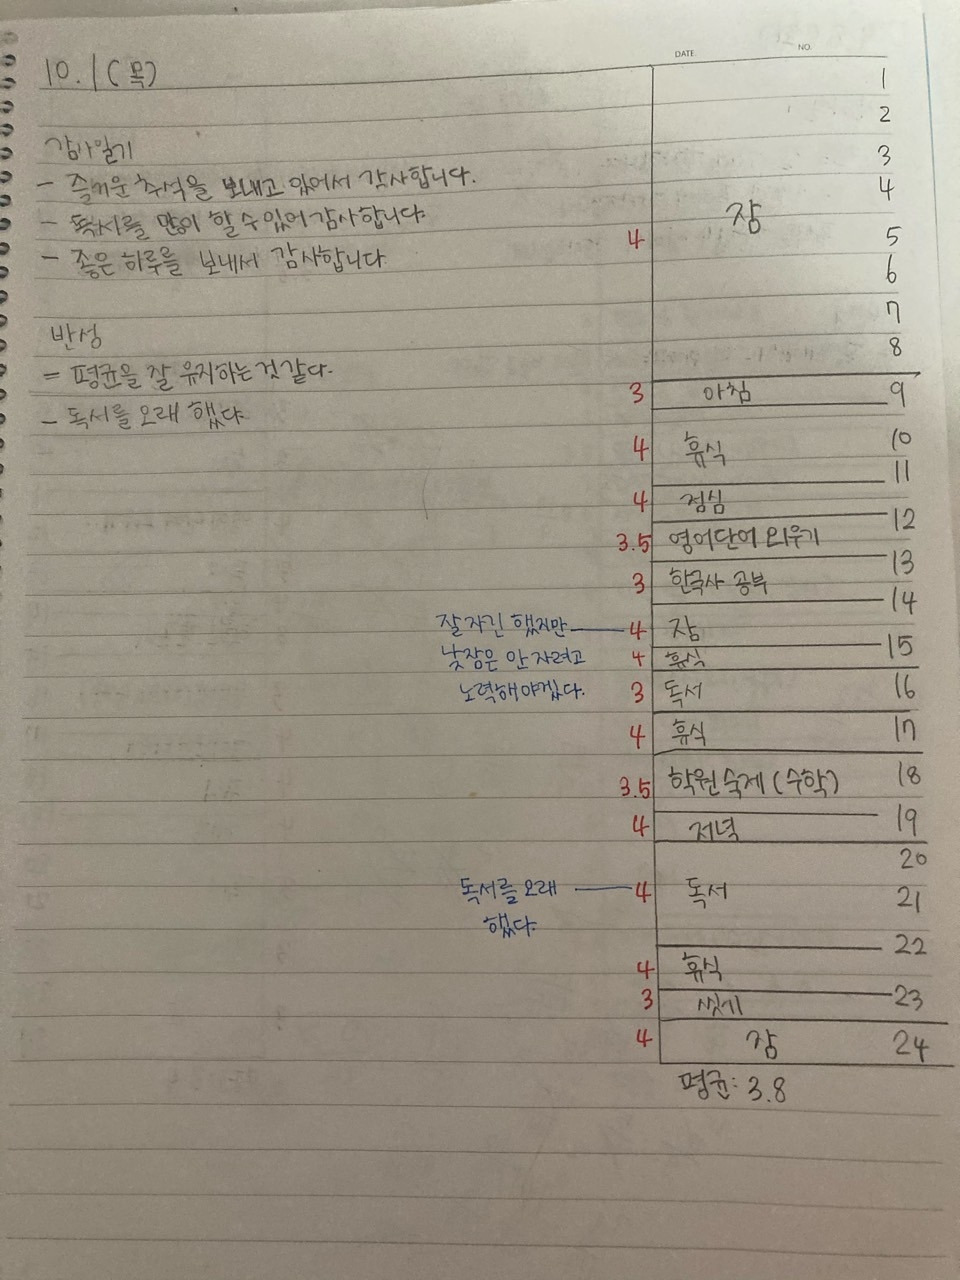 DATE. NO.
10. 1 (목)
감사일기
- 즐거운 추석을 보내고 있어서 감사합니다.
- 독서를 많이 할 수 있어 감사합니다
- 좋은 하루를 보내서 감사합니다
반성
= 평균을 잘 유지하는것 같다.
- 독서를 오래 했다.
1
2
3
4
4 잠 5
6
7
8
3 아침 9
4 휴식 10
11
4 점심
12
3.5 영어단어 외우기
13
3 한국사 공부
14
잘 자긴 했지만 4 잠
15
낮잠은 안 자려고 4 휴식
노력해야겠다. 3 독서 16
4 휴식 17
3.5 학원 숙제 (수학) 18
4 저녁 19
20
독서를 오래 4 독서 21
했다.
22
4 휴식
3 씻기 23
4 잠 24
평균: 3.8